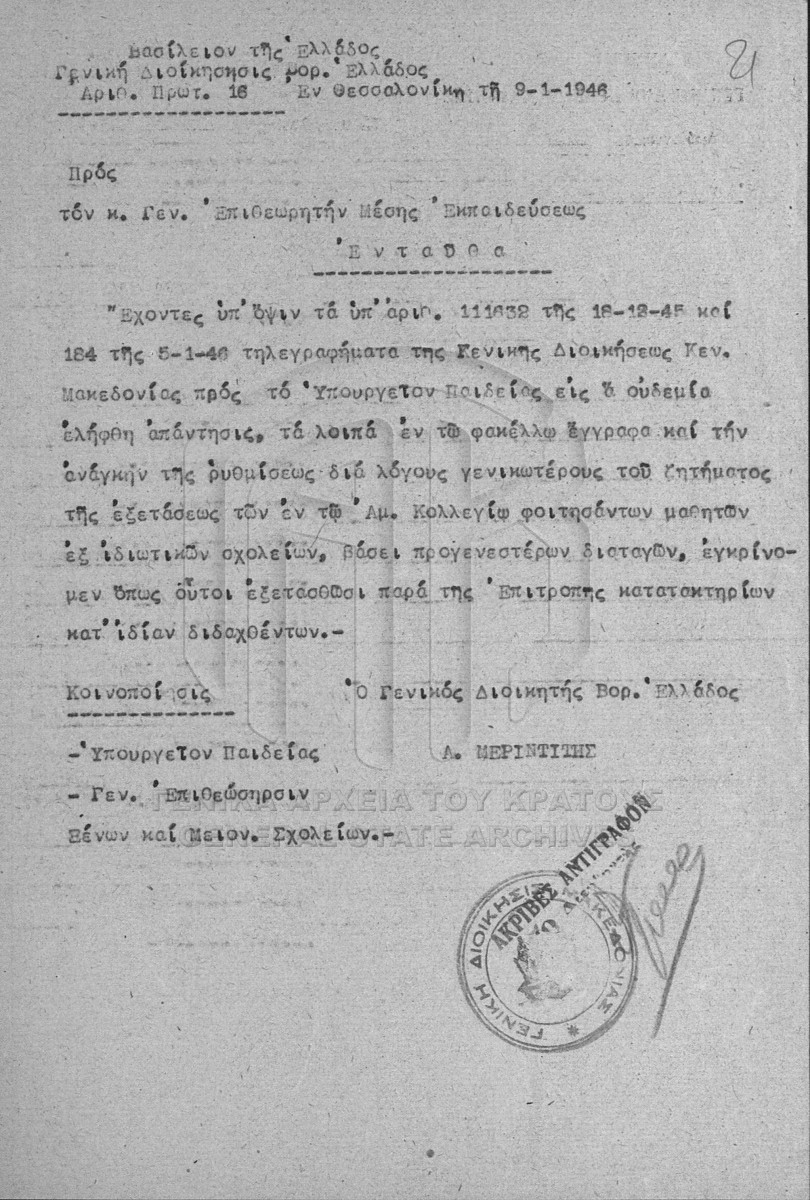 21
Βασίλειον τῆς Ἑλλάδος
Γενική Διοίκησησις Βορ. Ἑλλάδος
Αριθ. Πρωτ. 16 Ἐν Θεσσαλονίκῃ τῇ 9-1-1946
Πρός
τόν κ. Γεν. Ἐπιθεωρητήν Μέσης Ἐκπαιδεύσεως
Ἐνταῦθα
Ἔχοντες ὑπ' ὄψιν τά ὑπ' ἀριθ. 111632 τῆς 18-12-45 καί
184 τῆς 5-1-46 τηλεγραφήματα της Γενικης Διοικήσεως Κεν.
Μακεδονίας πρός τό Ὑπουργεῖον Παιδείας εἰς ἅ οὐδεμία
ἐλήφθη ἀπάντησις, τά λοιπά ἐν τῶ φακέλλω ἔγγραφα καί τήν
ἀνάγκην τῆς ρυθμίσεως διά λόγους γενικωτέρους τοῦ ζητήματος
τῆς ἐξετάσεως τῶν ἐν τῷ Ἀμ. Κολλεγίῳ φοιτησάντων μαθητῶν
ἐξ ἰδιωτικῶν σχολείων, βάσει προγενεστέρων διαταγῶν, ἐγκρίνο-
μεν ὅπως οὗτοι ἐξετασθῶσι παρά της Ἐπιτροπης κατατακτηρίων
κατ' ἰδίαν διδαχθέντων.-
Κοινοποίησις Ὁ Γενικός Διοικητής Βορ. Ἑλλάδος
-Ὑπουργεῖον Παιδείας Α. ΜΕΡΙΝΤΙΤΗΣ
- Γεν. Ἐπιθεώσηρσιν
Ξένων καί Μειον. Σχολείων.-
ΓΕΝΙΚΑ ΑΡΧΕΙΑ ΤΟΥ ΚΡΑΤΟΥΣ
GENERAL STATE ARCHIVES
ΑΚΡΙΒΕΣ ΑΝΤΙΓΡΑΦΟΝ
ΓΕΝΙΚΗ ΔΙΟΙΚΗΣΙΣ ΜΑΚΕΔΟΝΙΑΣ